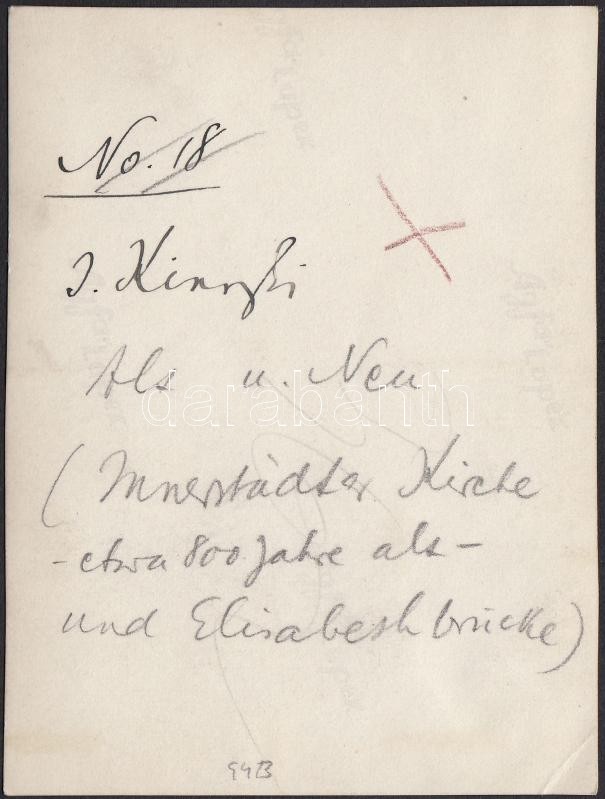 No. 18
J. Kinszki
Alt u. Neu
(Innerstädter Kirche
- etwa 800 Jahre alt -
und Elisabethbrücke)
darabanth
94B